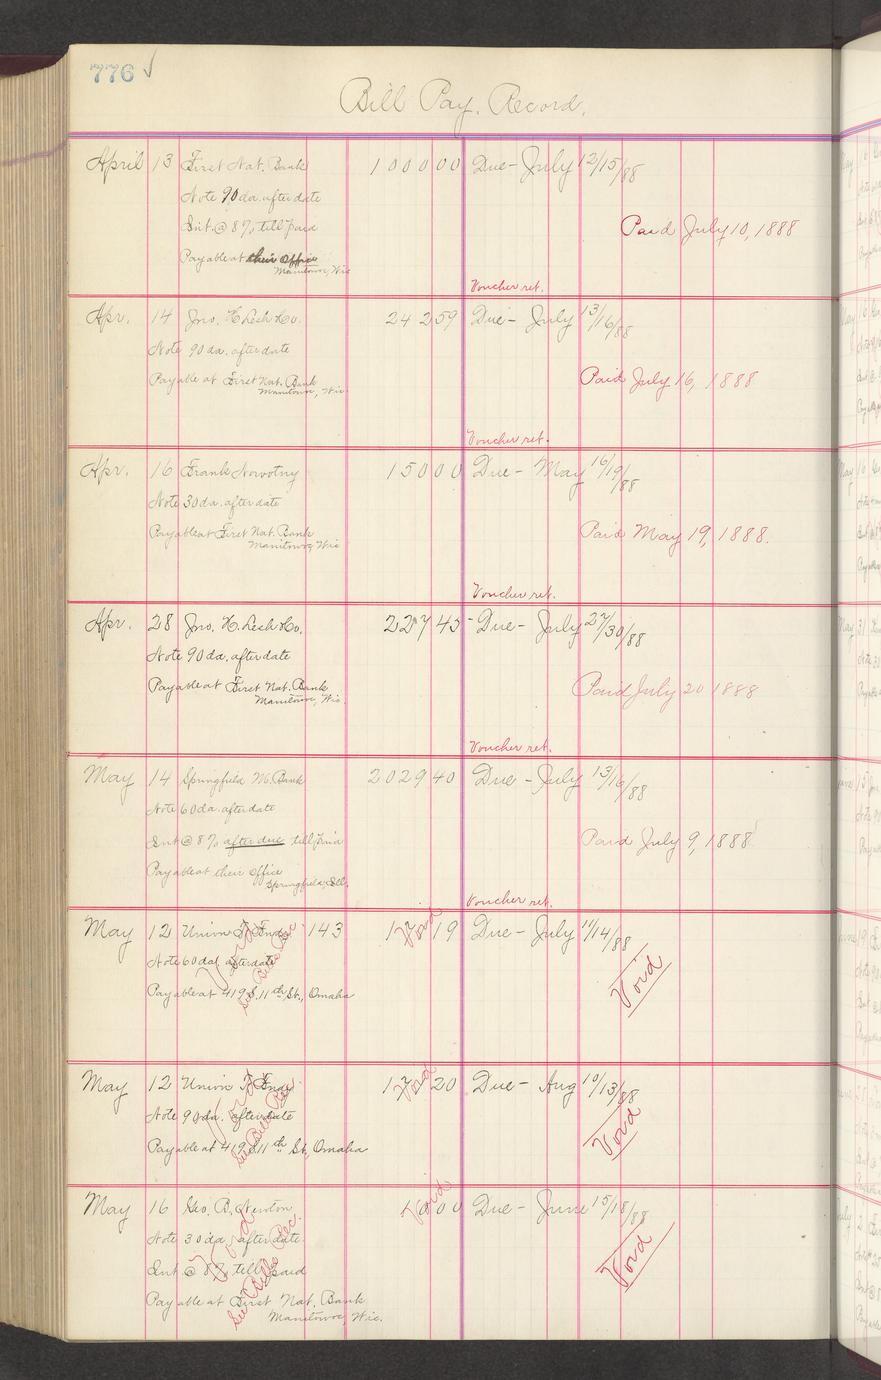 776 ✓
Bill Pay. Record.
April 13 First Nat. Bank 1 0 0 0 0 0 Due - July 12/15/88
Note 90 da. after date
Int. @ 8% till paid Paid July 10, 1888
Payable at their Office
Manitowoc, Wis
Voucher ret.
Apr. 14 Jno. H. Lesh & Co. 24 2 59 Due - July 13/16/88
Note 90 da. after date
Payable at First Nat. Bank Paid July 16, 1888
Manitowoc, Wis.
Voucher ret.
Apr. 16 Frank Novotny 1 5 0 0 0 Due - May 16/19/88
Note 30 da. after date
Payable at First Nat. Bank Paid May 19, 1888.
Manitowoc, Wis
Voucher ret.
Apr. 28 Jno. H. Lesh & Co. 227 45 Due - July 27/30/88
Note 90 da. after date
Payable at First Nat. Bank Paid July 20 1888
Manitowoc, Wis.
Voucher ret.
May 14 Springfield M. Bank 2 0 2 9 40 Due - July 13/16/88
Note 60 da. after date
Int @ 8% after due till paid Paid July 9, 1888
Payable at their office
Springfield, Ill.
Voucher ret.
May 12 Union 143 19 Due - July 11/14/88
Void
Note 60 da. after date
Void
See Bills Rec.
Void
Payable at 419 S. 11th St., Omaha
May 12 Union 20 Due - Aug 10/13/88
Void
Note 90 da. after date
Void
See Bills Rec.
Void
Payable at 419 S 11th St, Omaha
May 16 Geo. B. Newton 00 Due - June 15/18/88
Void
Note 30 da. after date
Int @ 8% till paid
Void
See Bills Rec.
Void
Payable at First Nat. Bank
Manitowoc, Wis.